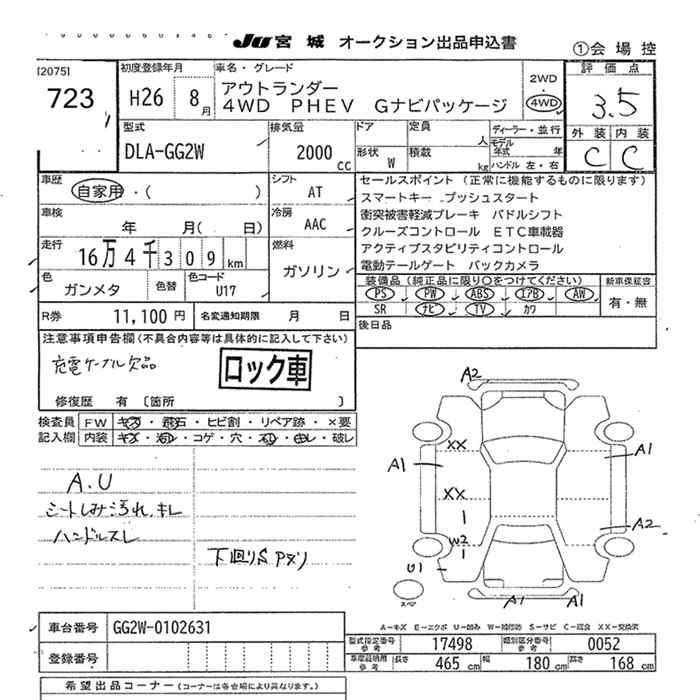 JU 宮城 オークション出品申込書
①会場控
[2075]
723
初度登録年月
H26 8月
車名・グレード
アウトランダー
4WD PHEV Gナビパッケージ
2WD
4WD
評価点
3.5
外装 内装
C C
型式
DLA-GG2W
排気量
2000 CC
ドア
定員
人
形状 W
積載
kg
ディーラー・並行
モデル年式 年
ハンドル 左・右
車歴
自家用・( )
シフト
AT
車検
年 月( 日)
冷房
AAC
走行
16万4千309km
燃料
ガソリン
色
ガンメタ
色替
色コード
U17
セールスポイント (正常に機能するものに限ります)
スマートキー プッシュスタート
衝突被害軽減ブレーキ パドルシフト
クルーズコントロール ETC車載器
アクティブスタビリティコントロール
電動テールゲート バックカメラ
装備品(純正品に限り〇をつけてください)
PS PW ABS エアB AW
SR ナビ TV カワ
新車保証書
有・無
後日品
R券 11,100 円
名変通知期限 月 日
注意事項申告欄(不具合内容等は具体的に記入して下さい)
充電ケーブル欠品
ロック車
修復歴 有 [箇所 ]
検査員記入欄
FW キズ・飛石・ヒビ割・リペア跡・×要
内装 キズ・汚れ・コゲ・穴・スレ・キレ・破レ
A.U
シートしみ汚れ、キレ
ハンドルスレ
下廻りS アタリ
A2
XX
A1
A1
XX
A2
W2
U1
スペア
A1
A1
A-キズ E-エクボ U-凹み W-補修跡 S-サビ C-腐食 XX-交換済
車台番号 GG2W-0102631
登録番号
型式指定番号 参考 17498
類別区分番号 参考 0052
車庫証明用 参考 長さ 465 cm 幅 180 cm 高さ 168 cm
希望出品コーナー(コーナーは各会場により異なります。)